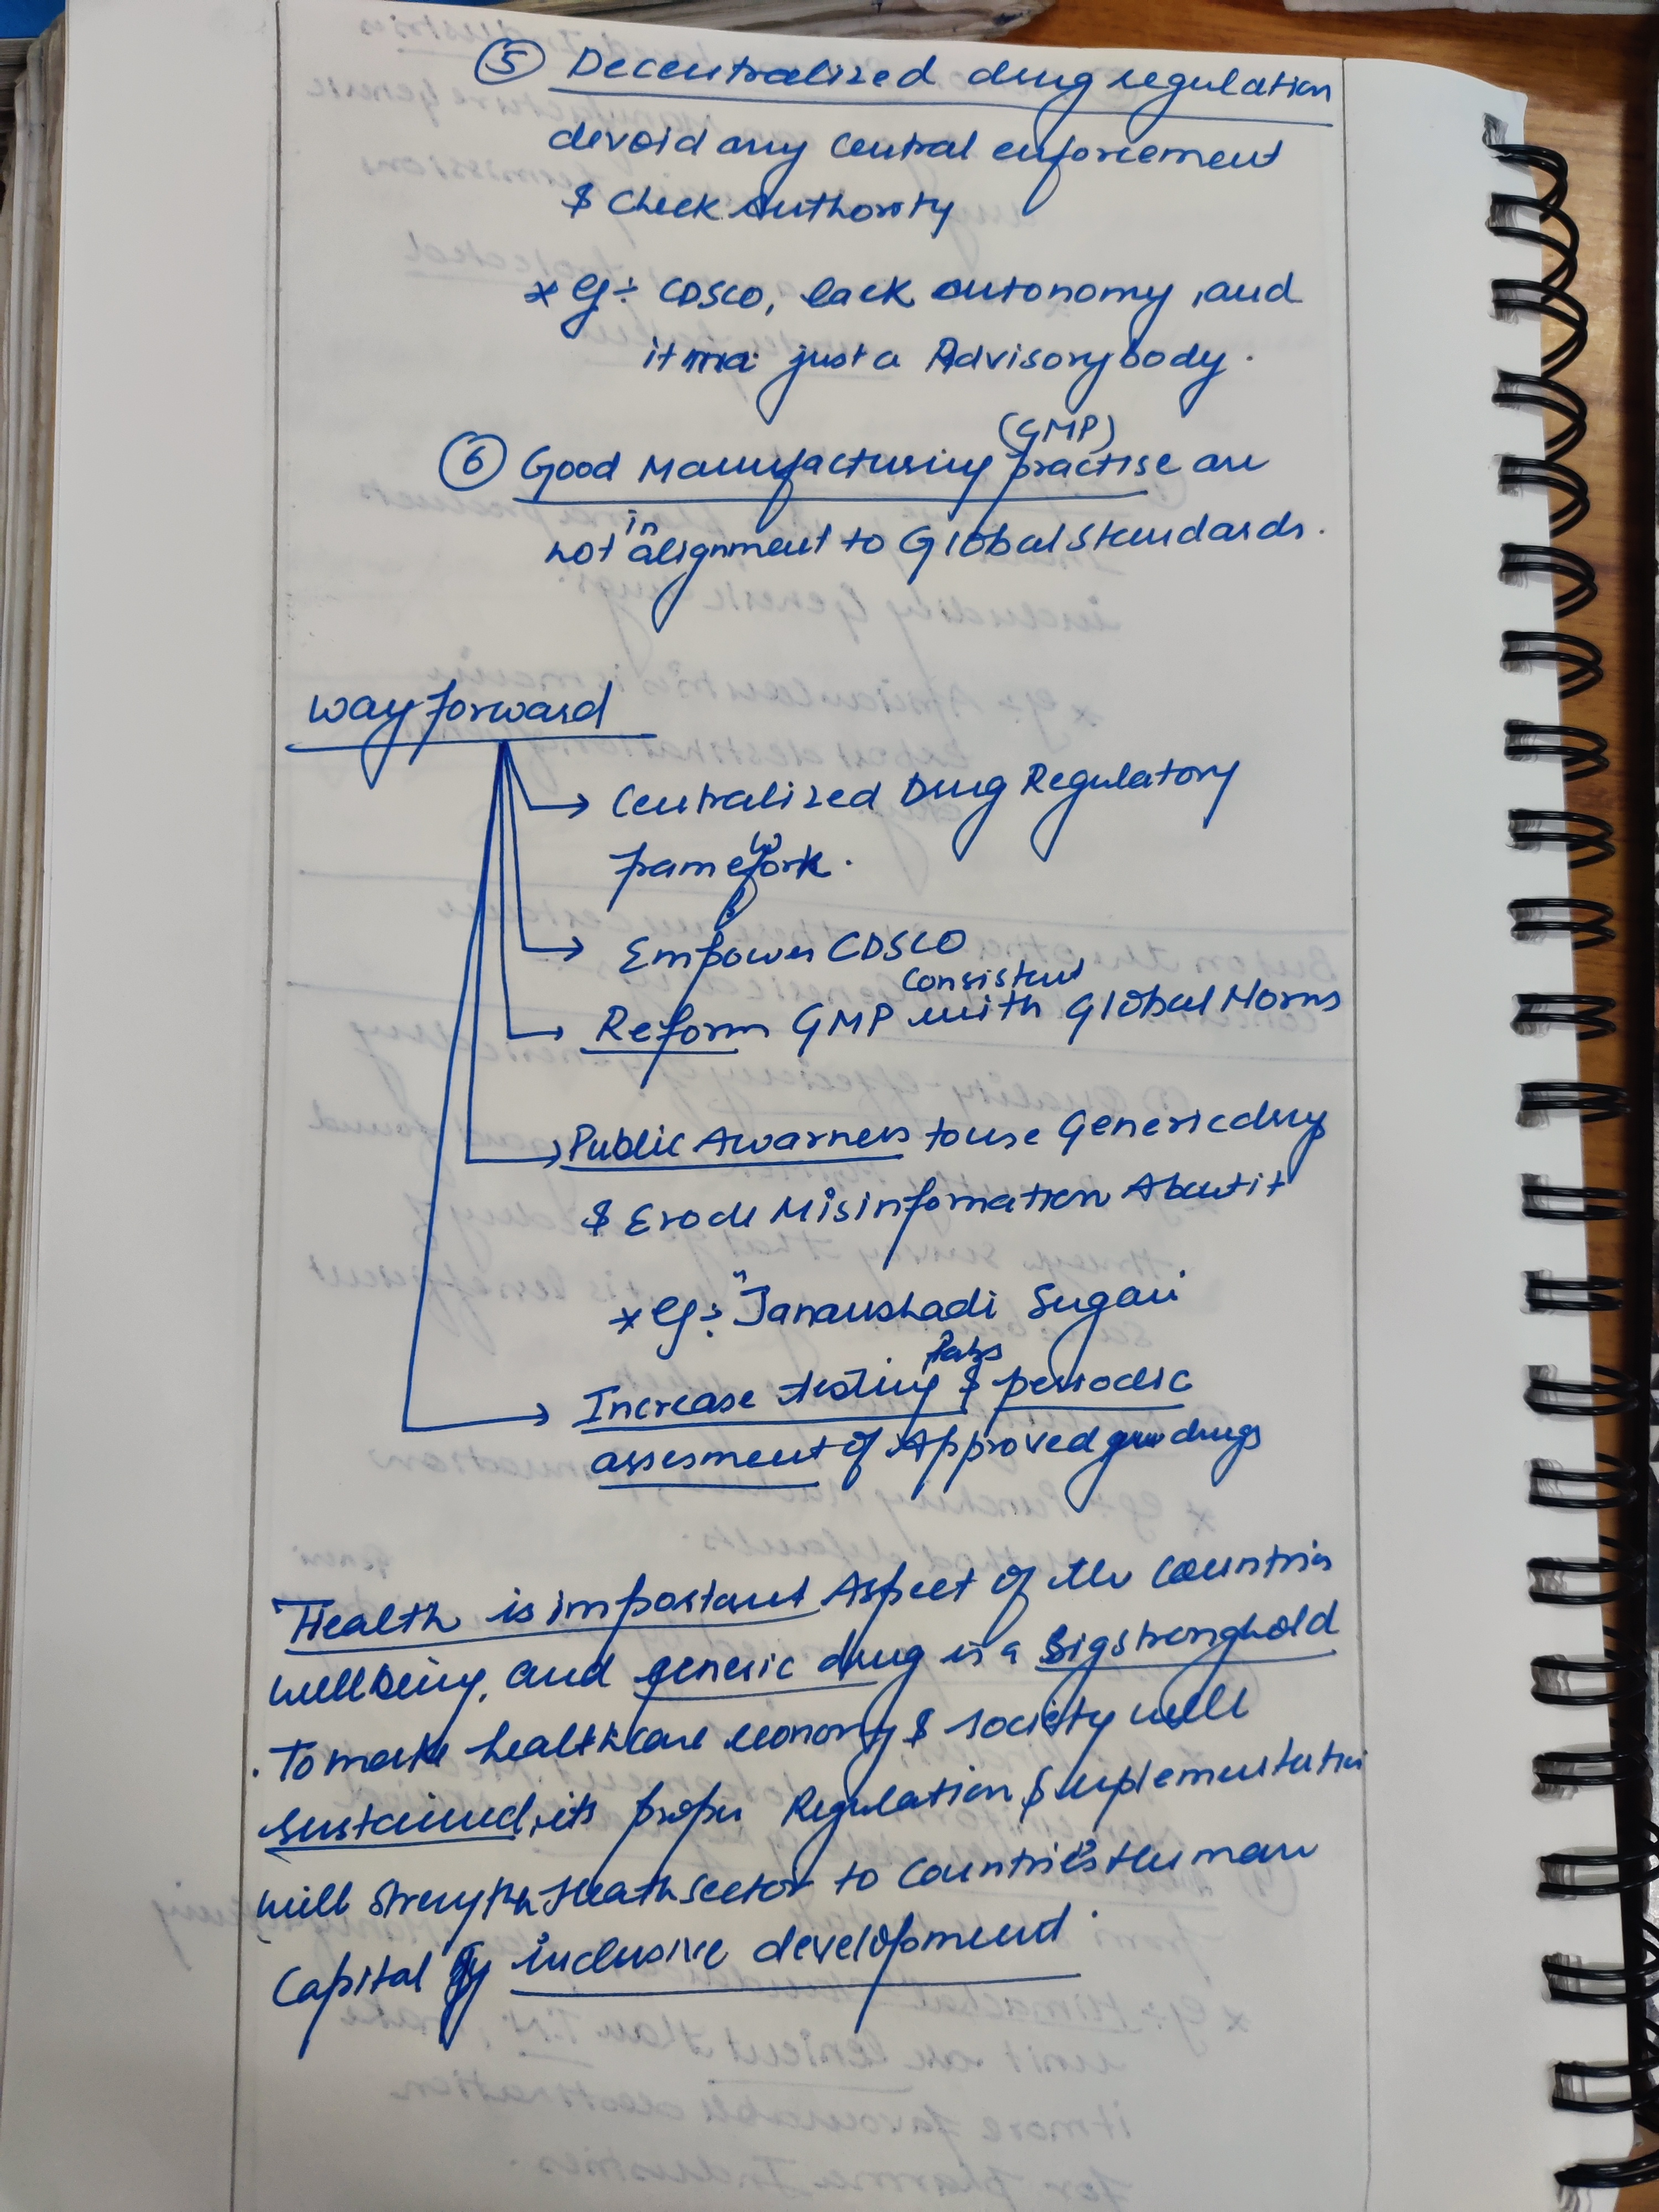 5 Decentralized drug regulation
devoid any central enforcement
& Check Authority
* eg:- CDSCO, lack autonomy, and
it just a Advisory body.
(GMP)
6 Good Manufacturing practise are
in
not alignment to Global Standards.
Way forward
→ Centralized Drug Regulatory
framework.
→ Empower CDSCO
Consistent
→ Reform GMP with Global Norms
→ Public Awarness to use Generic drug
& Erode Misinformation About it
* eg:- "Janaushadi Sugari
labs
→ Increase testing & periodic
assesment of Approved drugs
Health is important Aspect of the countries
wellbeing, and generic drug is a big stronghold
. To make healthcare economy & society well
sustained, its proper Regulation & implementation
will strength Heath sector to countries Human
Capital inclusive development.